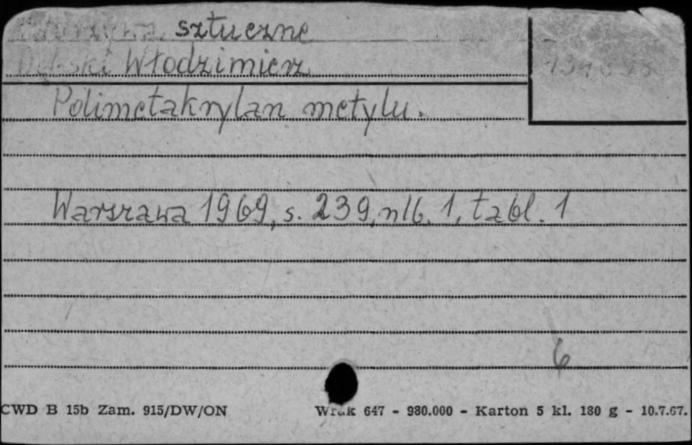 Tworzywa sztuczne
Dębski Włodzimierz
Polimetakrylan metylu.
Warszawa 1969, s. 239, nlb. 1, tabl. 1
6
CWD B 15b Zam. 915/DW/ON Wrak 647 - 980.000 - Karton 5 kl. 180 g - 10.7.67.